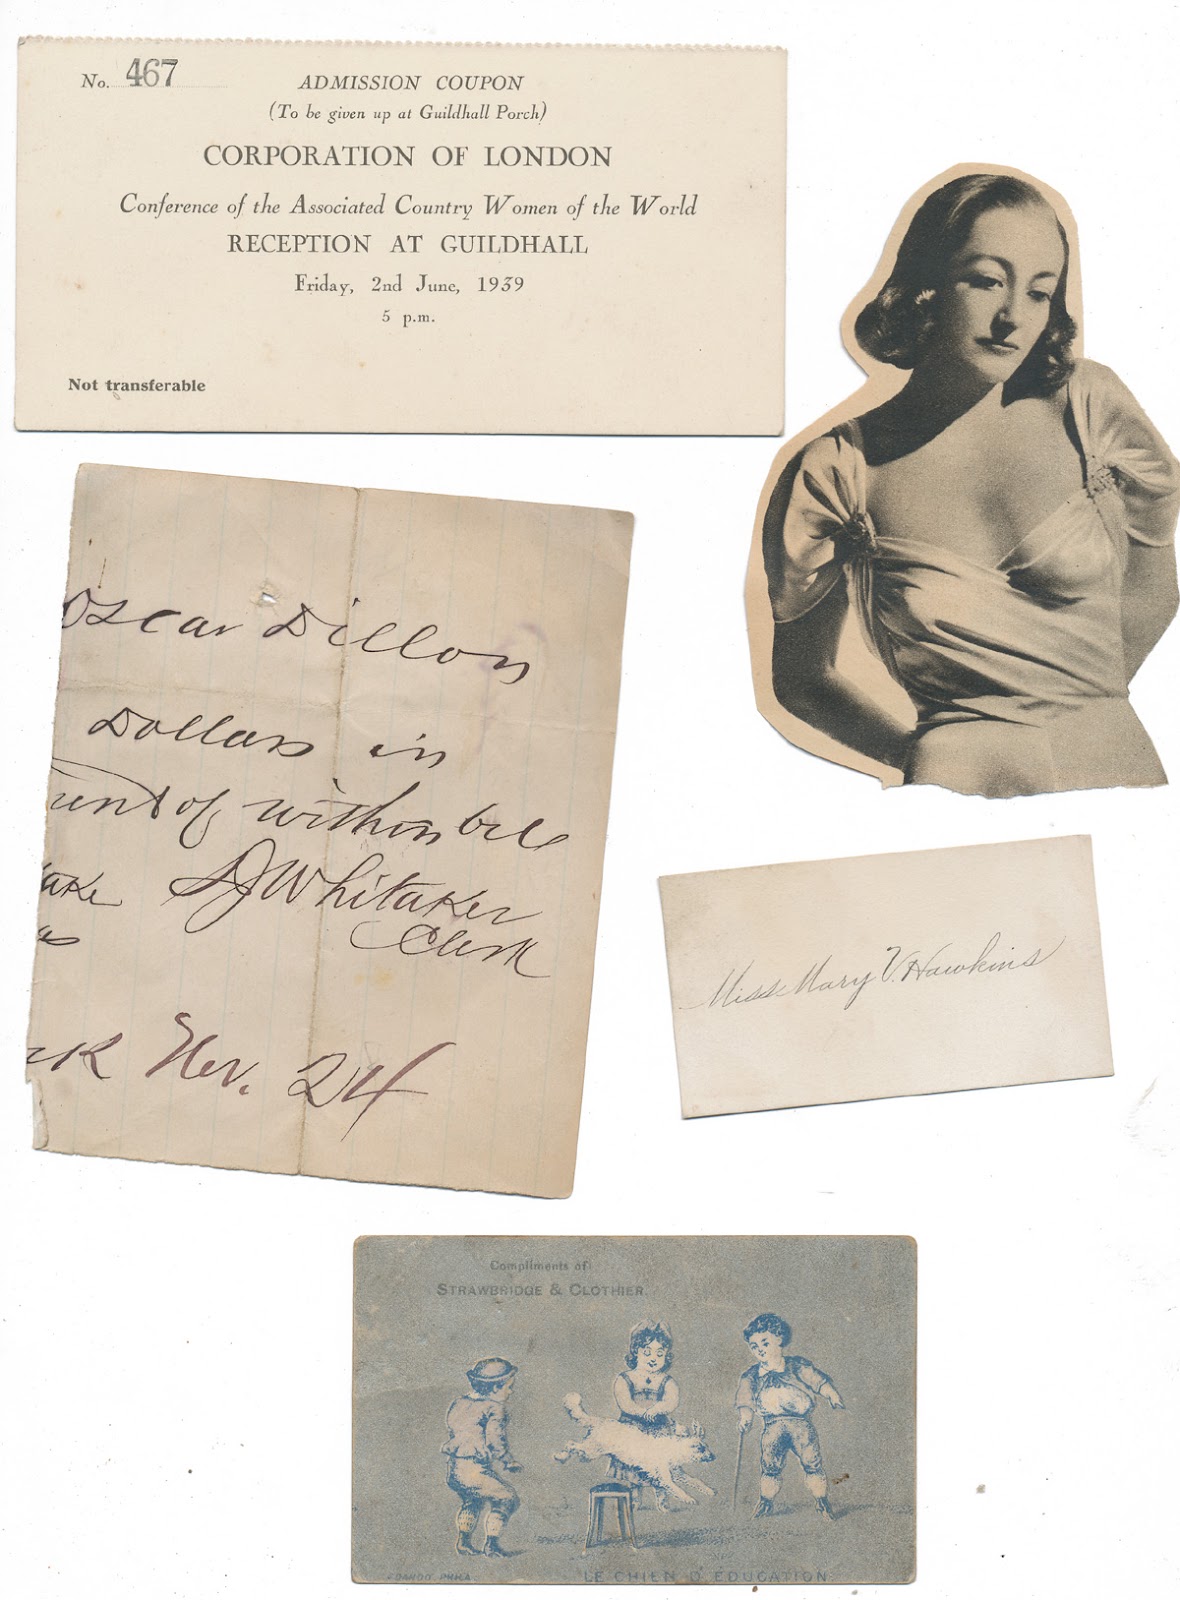 No. 467
ADMISSION COUPON
(To be given up at Guildhall Porch)
CORPORATION OF LONDON
Conference of the Associated Country Women of the World
RECEPTION AT GUILDHALL
Friday, 2nd June, 1939
5 p.m.
Not transferable
Oscar Dillon
Dollars in
of within
Whitaker
Clerk
24
Miss Mary V. Hawkins
Compliments of
STRAWBRIDGE & CLOTHIER.
LE CHIEN D'EDUCATION